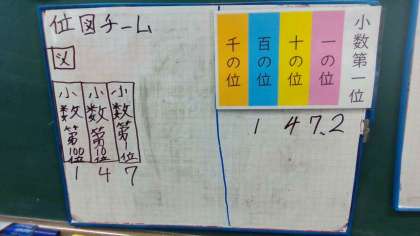 位図チーム
図
小数第100位
小数第10位
小数第1位
1 4 7
千の位
百の位
十の位
一の位
小数第一位
1 4 7.2